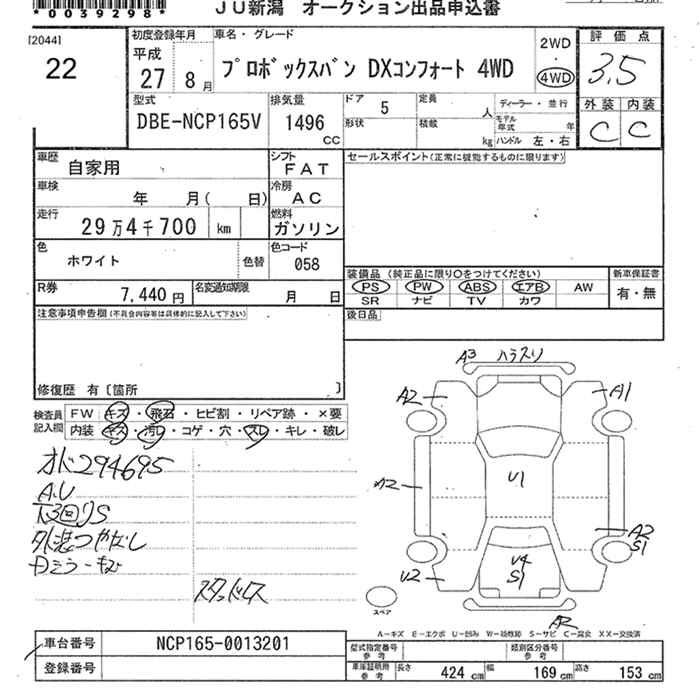 *0039298*
JU新潟 オークション出品申込書
[2044]
22
初度登録年月
平成
27 8月
車名・グレード
プロボックスバン DXコンフォート 4WD
2WD
・
4WD
評価点
3.5
外装 内装
C C
型式
DBE-NCP165V
排気量
1496
CC
ドア 5
形状
定員 人
積載 kg
ディーラー・並行
モデル年式 年
ハンドル 左・右
車歴
自家用
シフト
FAT
セールスポイント(正常に機能するものに限ります)
車検
年 月( 日)
冷房
AC
走行
29万4千700 km
燃料
ガソリン
色
ホワイト
色替
色コード
058
R券
7,440円
名変通知期限
月 日
装備品(純正品に限り○をつけてください)
PS PW ABS エアB AW
SR ナビ TV カワ
新車保証書
有・無
後日品
注意事項申告欄(不具合内容等は具体的に記入して下さい)
修復歴 有〔箇所 〕
検査員
記入欄
FW キズ・飛石・ヒビ割・リペア跡・×要
内装 キズ・汚レ・コゲ・穴・スレ・キレ・破レ
オド294695
A.U
下3回りS
外装つやなし
スタッドレス
A3 ハラスリ
A2
A1
A2
U1
A2
S1
U2
U4
S1
A2
スペア
A－キズ E－エクボ U－凹み W－補修跡 S－サビ C－腐食 XX－交換済
車台番号
NCP165-0013201
登録番号
型式指定番号
参考
類別区分番号
参考
車庫証明用
参考
長さ 424 cm 幅 169 cm 高さ 153 cm